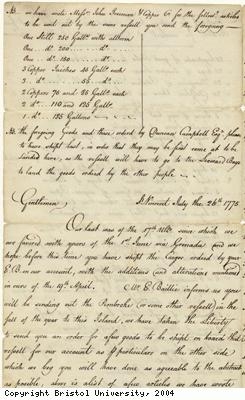 NB. we have wrote Messrs. John Freeman & Copper Co for the follow.g articles
to be sent out by the same vessell you send the forgoing —
One Still 250 Gall.s with
One — d.o 200 — d.o
One — d.o 150 — d.o
3 Copper 45 Gall.s each
3 — d.o — 55 — d.o
2 Coppers 70 and 95 Gall.s each
2 d.o — 110 and 125 Gall.s
1 d.o — 135 Gallons —
NB. the forgoing Goods and those orderd by Duncan Campbell Esq.r please
to have shipt last, in order that they may be first come at to be
landed here, as the vessell will have to go to the Leeward Bays
to land the goods orderd by the other people —
Gentlemen
St. Vincent July the 26th 1775
Our last was of the 17th Ult.o since which we
are favord with yours of the 1st June via Grenada and we
hope before this time you have shipt the Cargo orderd by your
E B. on our account, with the additions and alterations mentiond
in ours of the 19th April. Mr. E Baillie informs us you
will be sending out the Pembroke (or some other vessell) in the
fall of the year to this Island, we have taken the Liberty
to send you an order for a few goods to be shipt on board that
vessell for our accounts as p particulars on the other side
which we beg you will have done as agreeable to the abstract
as possible, above is a list of a few articles we have wrote
Copyright Bristol University, 2004